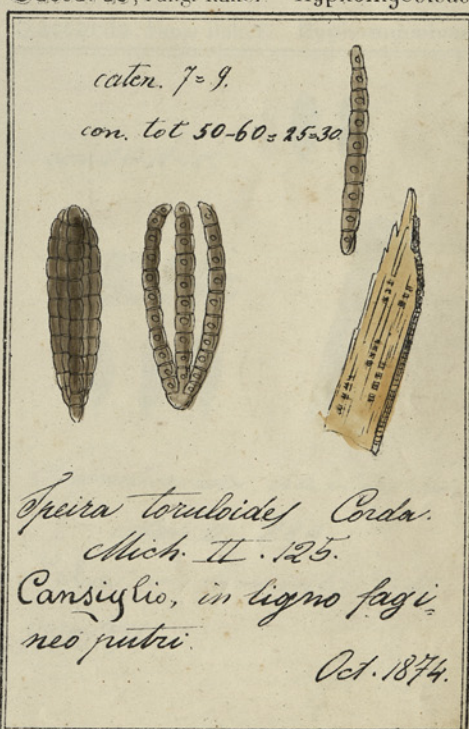 caten. 7=9.
con. tot 50-60=25=30
Speira toruloides Corda.
Mich. II. 125.
Cansiglio, in ligno fagi-
neo putri.
Oct. 1874.